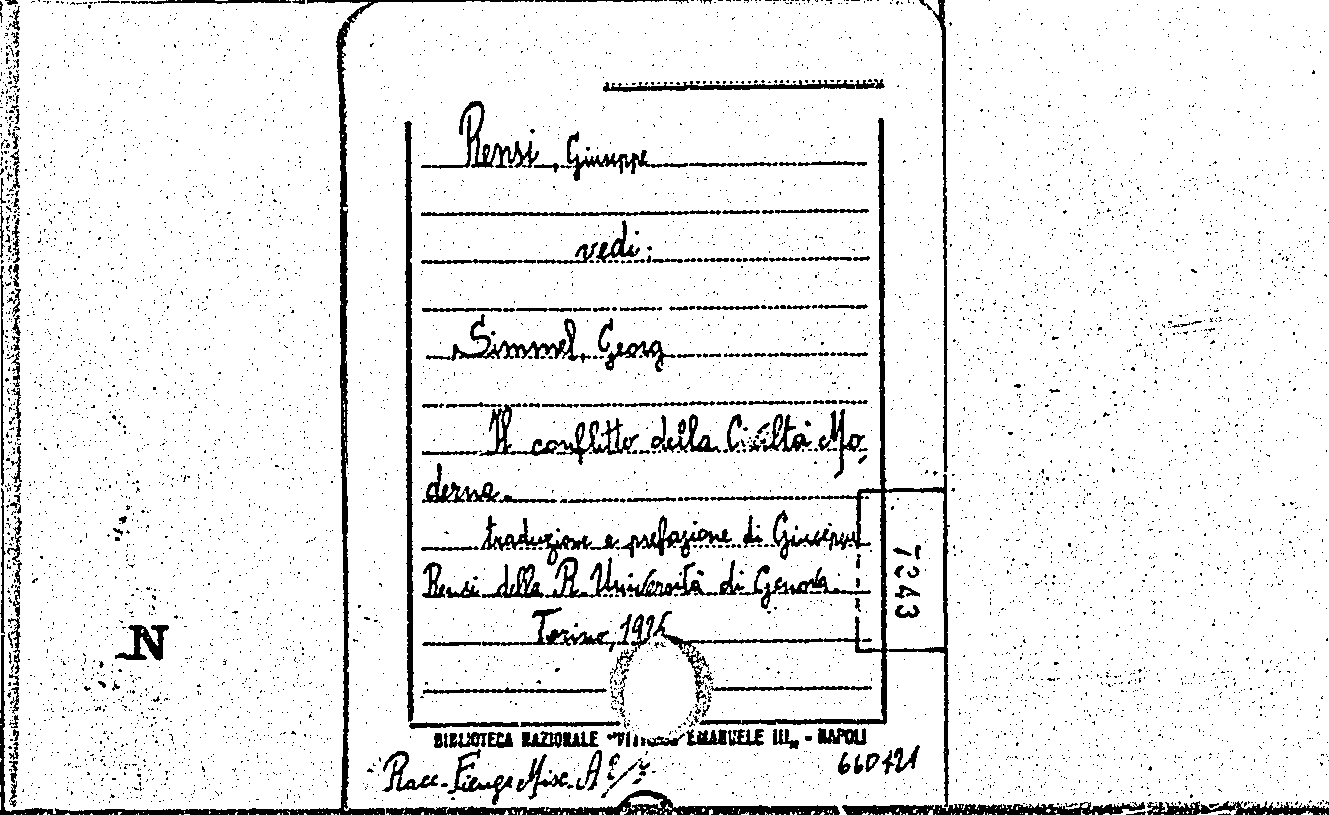 Rensi, Giuseppe
vedi:
Simmel, Georg
Il conflitto della Civiltà Mo-
derna.
traduzione e prefazione di Giuseppe
Rensi della R. Università di Genova.
Torino, 1925
7243
N
BIBLIOTECA NAZIONALE "VITTORIO EMANUELE III" - NAPOLI
Racc. Misc. A
660421